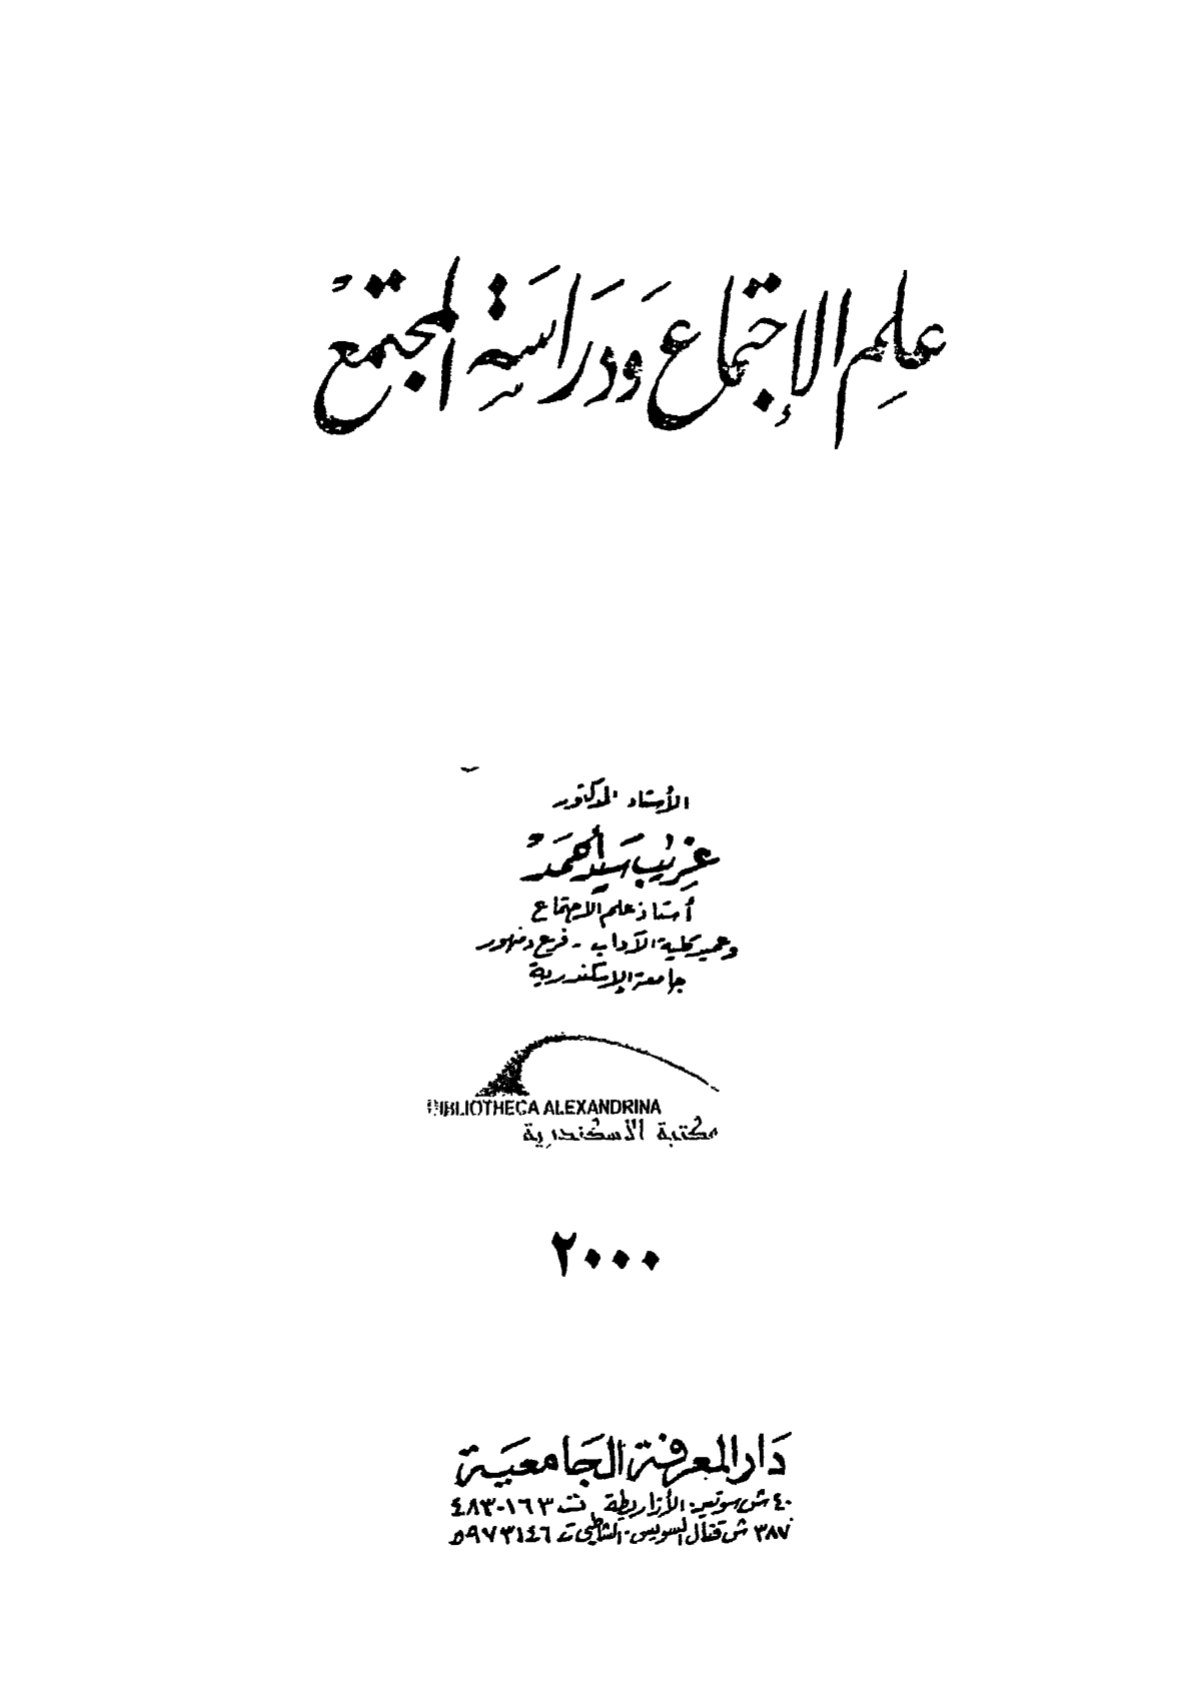 علم الإجتماع ودراسة المجتمع
الأستاذ الدكتور
غريب سيد أحمد
أستاذ علم الاجتماع
وعميد كلية الآداب - فرع دمنهور
جامعة الإسكندرية
BIBLIOTHECA ALEXANDRINA
مكتبة الاسكندرية
٢٠٠٠
دار المعرفة الجامعية
٤٠ ش سوتير - الأزاريطة ت ٤٨٣٠١٦٣
٣٨٧ ش قنال السويس - الشاطبي ت ٥٩٧٣١٤٦